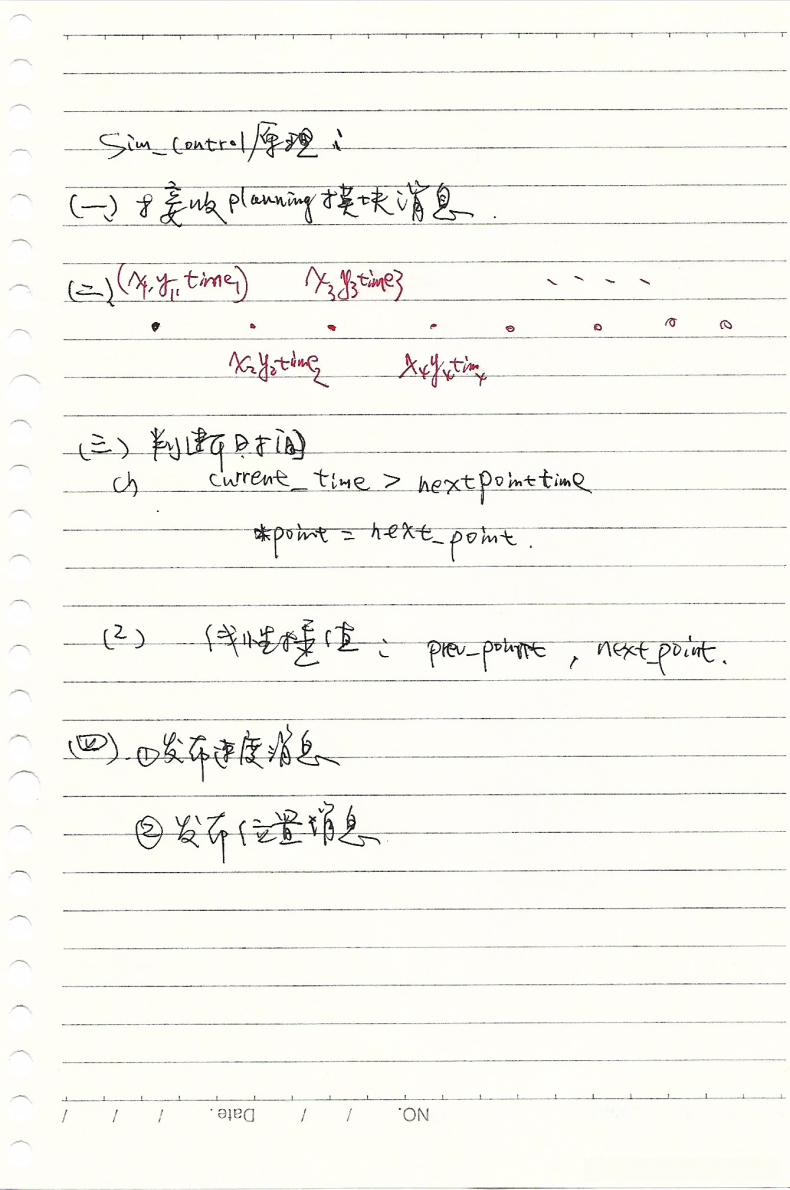 Sim_control原理:
(一) 接收planning模块消息.
(二) (x₁, y₁, time₁) x₃y₃time₃ 、、、、
x₂y₂time₂ x₄y₄time₄
(三) 判断时间
(1) current_time > nextpointtime
*point = next_point.
(2) 线性插值: prev_point, next_point.
(四). ①发布速度消息
②发布位置消息
NO.
Date . / / / / /